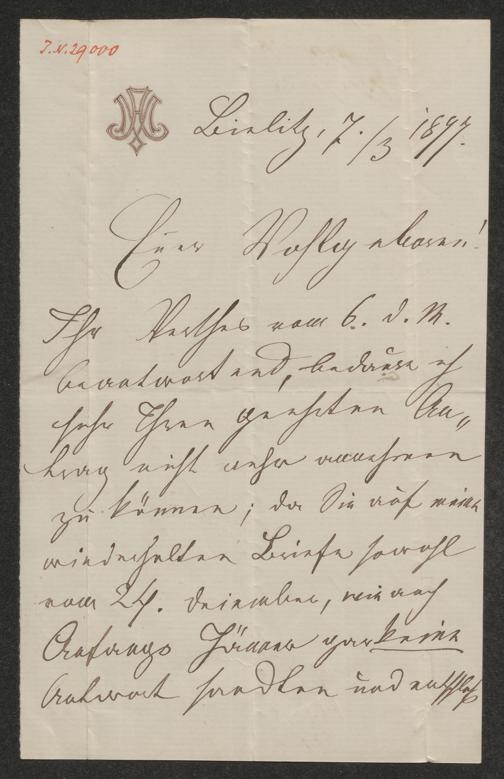 J.N. 29000
Bielitz, 7./3 1897.
Euer Wohlgeboren!
Ihr Werthes vom 6. d. M.
beantwortend, bedaure ich
sehr Ihren geehrten An„
trag nicht mehr annehmen
zu können; da Sie auf meine
wiederholten Briefe sowohl
vom 24. Dezember, wie auch
Anfangs Jänner gar keine
Antwort sandten und